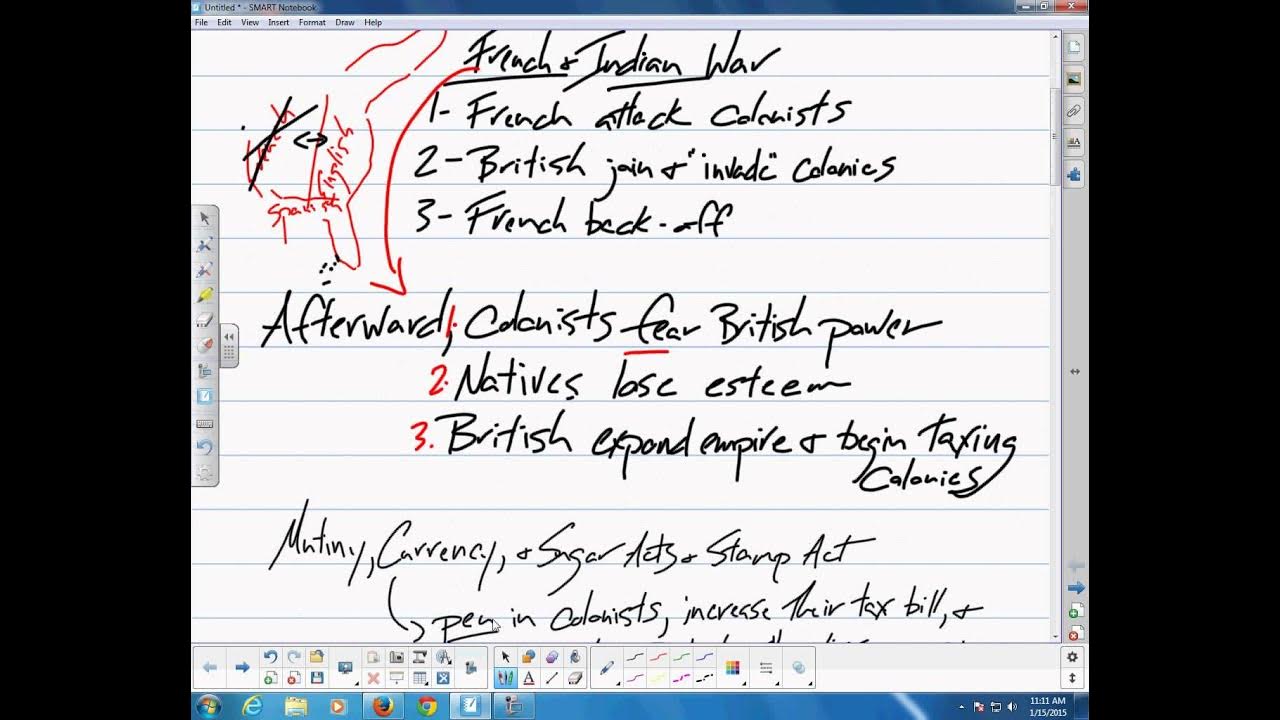 Untitled * - SMART Notebook
File Edit View Insert Format Draw Help
French & Indian War
1- French attack Colonists
2- British join & "invade" Colonies
3- French back-off
English
Spanish
Afterward, 1. Colonists fear British power
2. Natives lose esteem
3. British expand empire & begin taxing
Colonies
Mutiny, Currency, & Sugar Acts & Stamp Act
pen in colonists, increase their tax bill, &
11:11 AM
1/15/2015